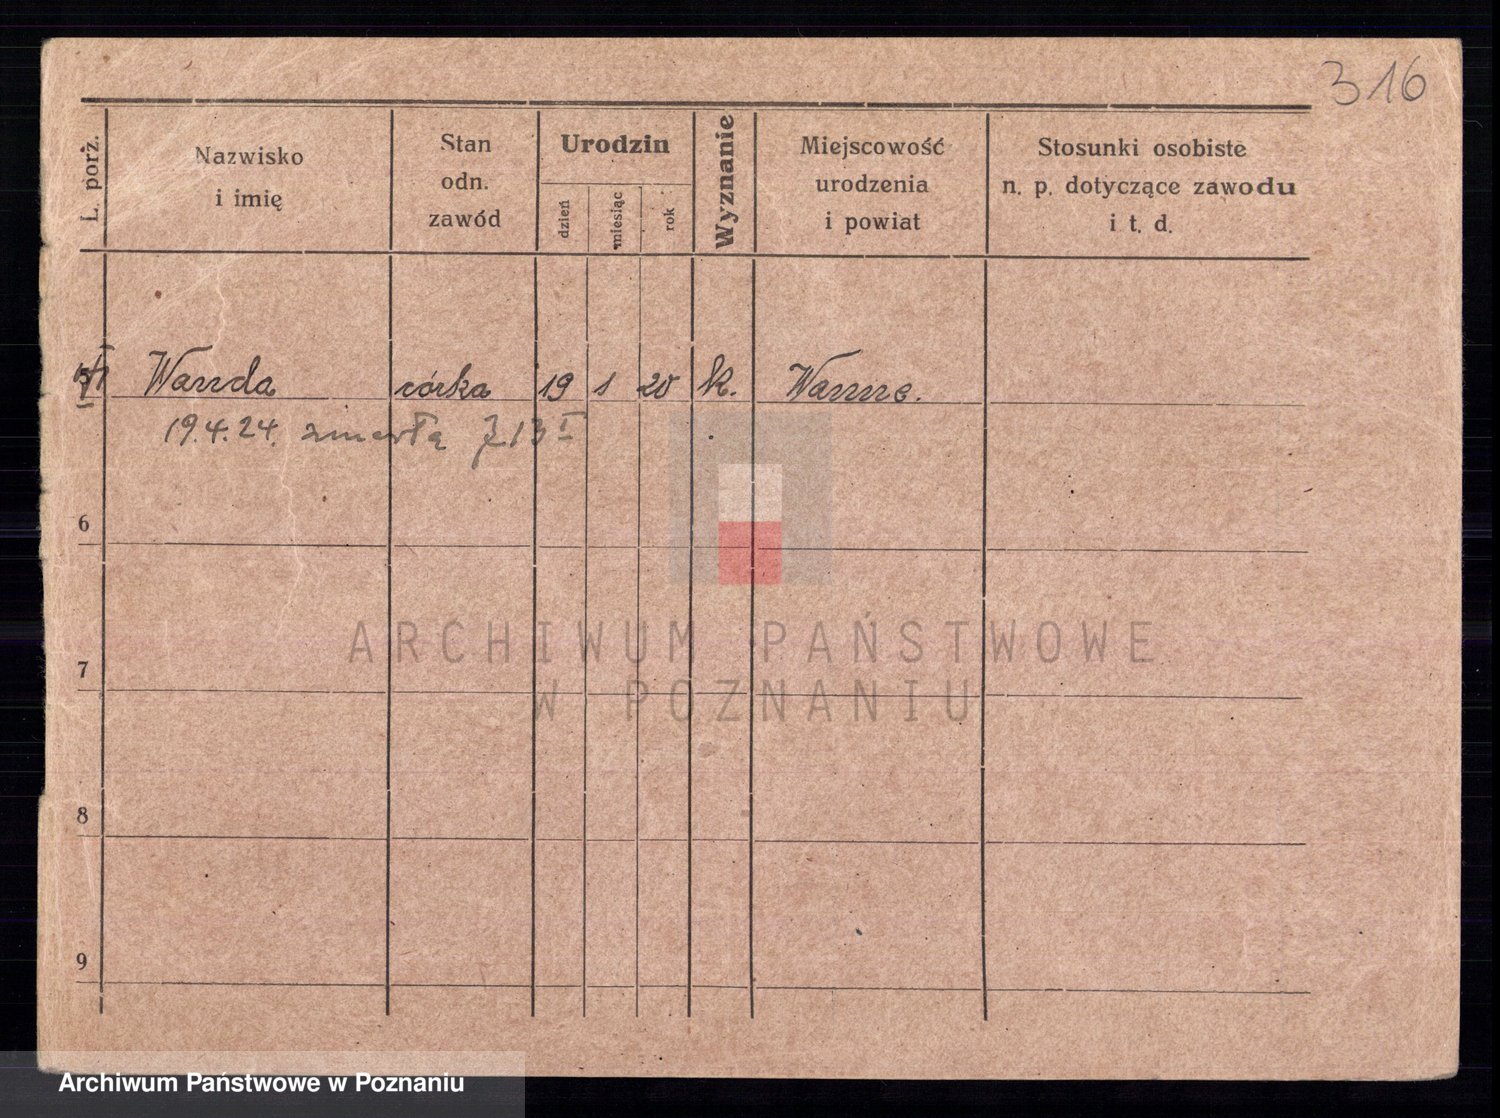 316
L. porż.
Nazwisko
i imię
Stan
odn.
zawód
Urodzin
dzień
miesiąc
rok
Wyznanie
Miejscowość
urodzenia
i powiat
Stosunki osobiste
n. p. dotyczące zawodu
i t. d.
Wanda córka 19 1 20 k. Wanne.
19.4.24. zmarła
6
7
8
9
ARCHIWUM PAŃSTWOWE
W POZNANIU
Archiwum Państwowe w Poznaniu